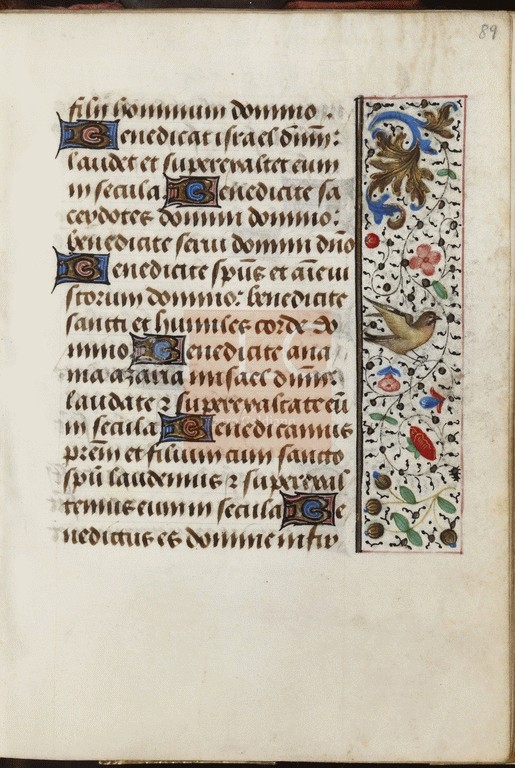 89
filii hominum domino.
Benedicat israel dnm:
laudet et superexaltet eum
in secula Benedicite sa
cerdotes domini domino:
benedicite serui domini dño
Benedicite spūs et aīe iu
storum domino: benedicite
sancti et humiles corde do
mino Benedicite ana
nia azaria misael dnm:
laudate ⁊ superexaltate eū
in secula Benedicamus
prēm et filium cum sancto
spū laudemus ⁊ superexal
temus eum in secula Be
nedictus es domine in fir